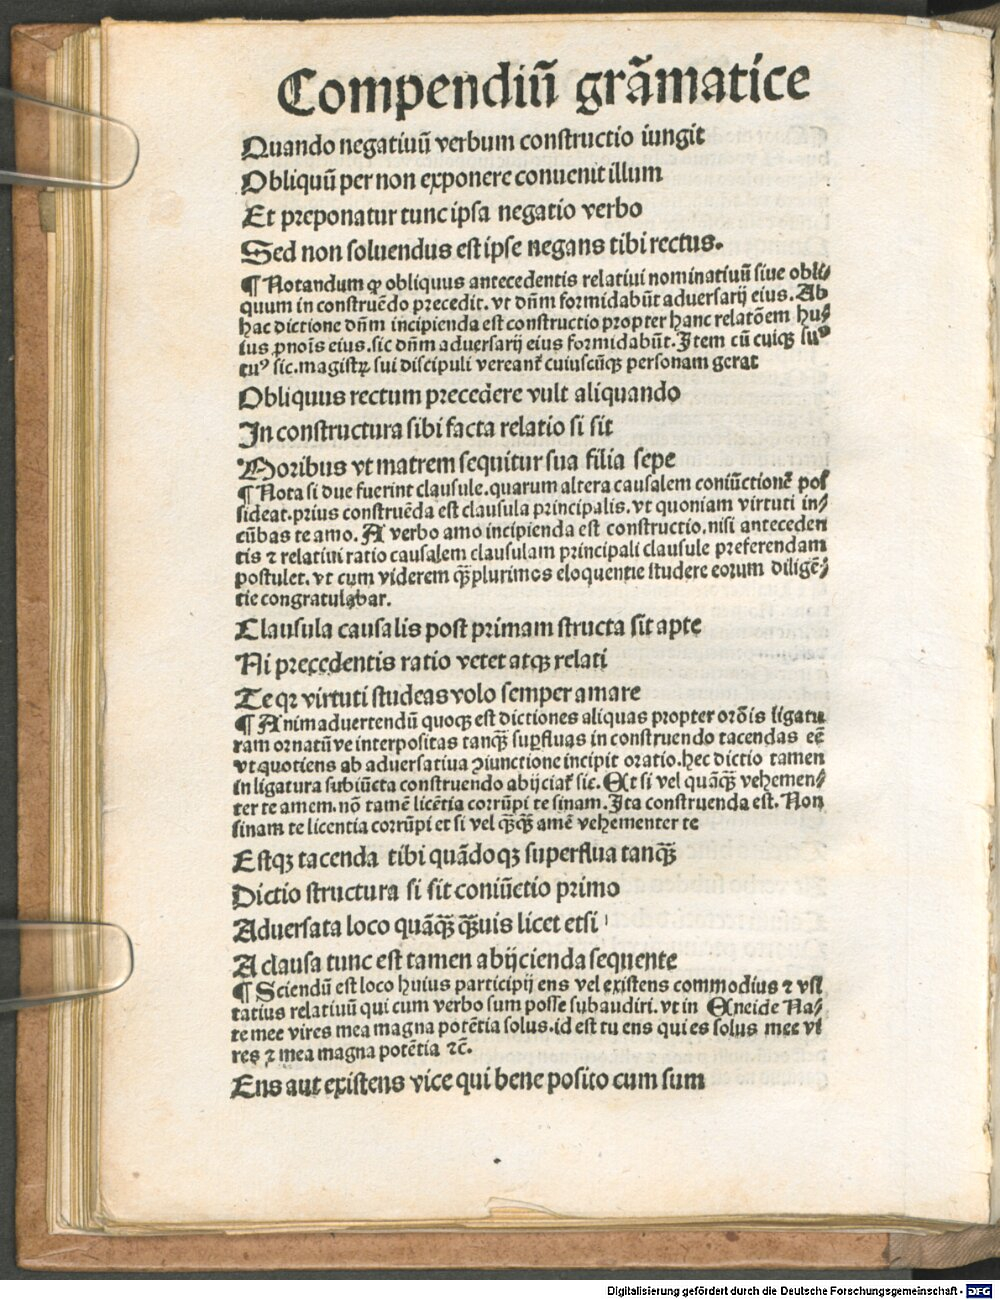 Compendiū grāmatice
Quando negatiuū verbum constructio iungit
Obliquū per non exponere conuenit illum
Et preponatur tunc ipsa negatio verbo
Sed non soluendus est ipse negans tibi rectus.
¶ Notandum ꝙ obliquus antecedentis relatiui nominatiuū siue obli⸗
quum in construēdo precedit. vt dn̄m formidabūt aduersarij eius. Ab
hac dictione dn̄m incipienda est constructio propter hanc relatōem hu⸗
ius ꝓnoīs eius. sic dn̄m aduersarij eius formidabūt. Item cū cuiqꝫ su⸗
tuꝰ sic. magistrꝝ sui discipuli vereant᷑ cuiuscūqꝫ personam gerat
Obliquus rectum precedere vult aliquando
In constructura sibi facta relatio si sit
Moribus vt matrem sequitur sua filia sepe
¶ Nota si due fuerint clausule. quarum altera causalem coniūctionē pos
sideat. prius construēda est clausula principalis. vt quoniam virtuti in⸗
cūbas te amo. A verbo amo incipienda est constructio. nisi anteceden
tis ⁊ relatiui ratio causalem clausulam principali clausule preferendam
postulet. vt cum viderem qꝫplurimos eloquentie studere eorum diligē⸗
tie congratulabar.
Clausula causalis post primam structa sit apte
Ni precedentis ratio vetet atqꝫ relati
Te qꝛ virtuti studeas volo semper amare
¶ Animaduertendū quoqꝫ est dictiones aliquas propter orōis ligatu
ram ornatūve interpositas tanqꝫ suꝑfluas in construendo tacendas eē
vt quotiens ab aduersatiua ꝯiunctione incipit oratio. hec dictio tamen
in ligatura subiūcta construendo abijciat᷑ sic. Et si vel quāqꝫ vehemen⸗
ter te amem. nō tamē licētia corrūpi te sinam. Ita construenda est. Non
sinam te licentia corrūpi et si vel qꝫqꝫ amē vehementer te
Estqꝫ tacenda tibi quādoqꝫ superflua tanqꝫ
Dictio structura si sit coniūctio primo
Aduersata loco quāqꝫ qꝫuis licet etsi
A clausa tunc est tamen abijcienda sequente
¶ Sciendū est loco huius participij ens vel existens commodius ⁊ vsi
tatius relatiuū qui cum verbo sum posse subaudiri. vt in Eneide Na⸗
te mee vires mea magna potētia solus. id est tu ens qui es solus mee vi
res ⁊ mea magna potētia ⁊c̄.
Ens aut existens vice qui bene posito cum sum
Digitalisierung gefördert durch die Deutsche Forschungsgemeinschaft - DFG